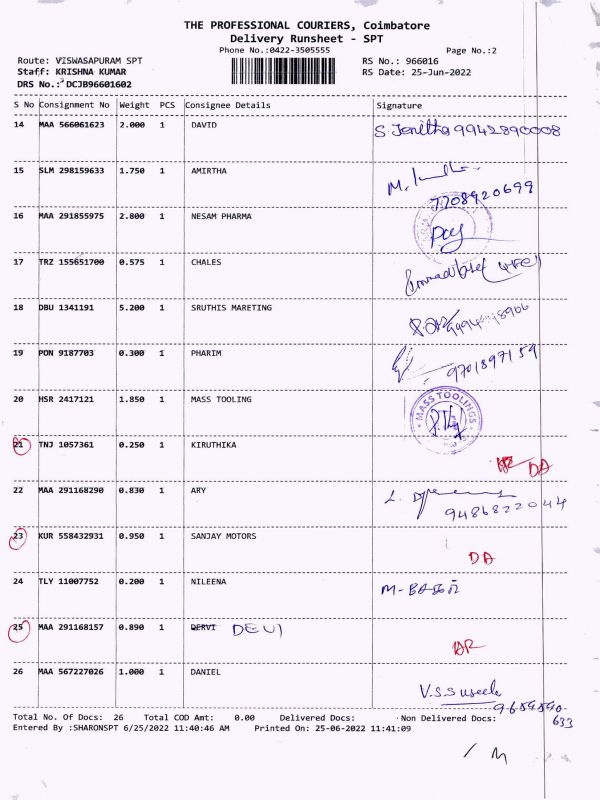 THE PROFESSIONAL COURIERS, Coimbatore
Delivery Runsheet - SPT
Phone No.:0422-3505555
Page No.:2
Route: VISWASAPURAM SPT
RS No.: 966016
Staff: KRISHNA KUMAR
RS Date: 25-Jun-2022
DRS No.: DCJB96601602
S No Consignment No Weight PCS Consignee Details Signature
14 MAA 566061623 2.000 1 DAVID S. Jenitha 9942890008
15 SLM 298159633 1.750 1 AMIRTHA M.
7708920699
16 MAA 291855975 2.800 1 NESAM PHARMA
17 TRZ 155651700 0.575 1 CHALES
18 DBU 1341191 5.200 1 SRUTHIS MARETING
19 PON 9187703 0.300 1 PHARIM 9701897159
20 HSR 2417121 1.850 1 MASS TOOLING MASS TOOLINGS
21 TNJ 1057361 0.250 1 KIRUTHIKA DA
22 MAA 291168290 0.830 1 ARY L.
9486822044
23 KUR 558432931 0.950 1 SANJAY MOTORS DA
24 TLY 11007752 0.200 1 NILEENA
25 MAA 291168157 0.890 1 DERVI DEVI
26 MAA 567227026 1.000 1 DANIEL V.S Suseela
9659590
633
Total No. Of Docs: 26 Total COD Amt: 0.00 Delivered Docs: Non Delivered Docs:
Entered By :SHARONSPT 6/25/2022 11:40:46 AM Printed On: 25-06-2022 11:41:09